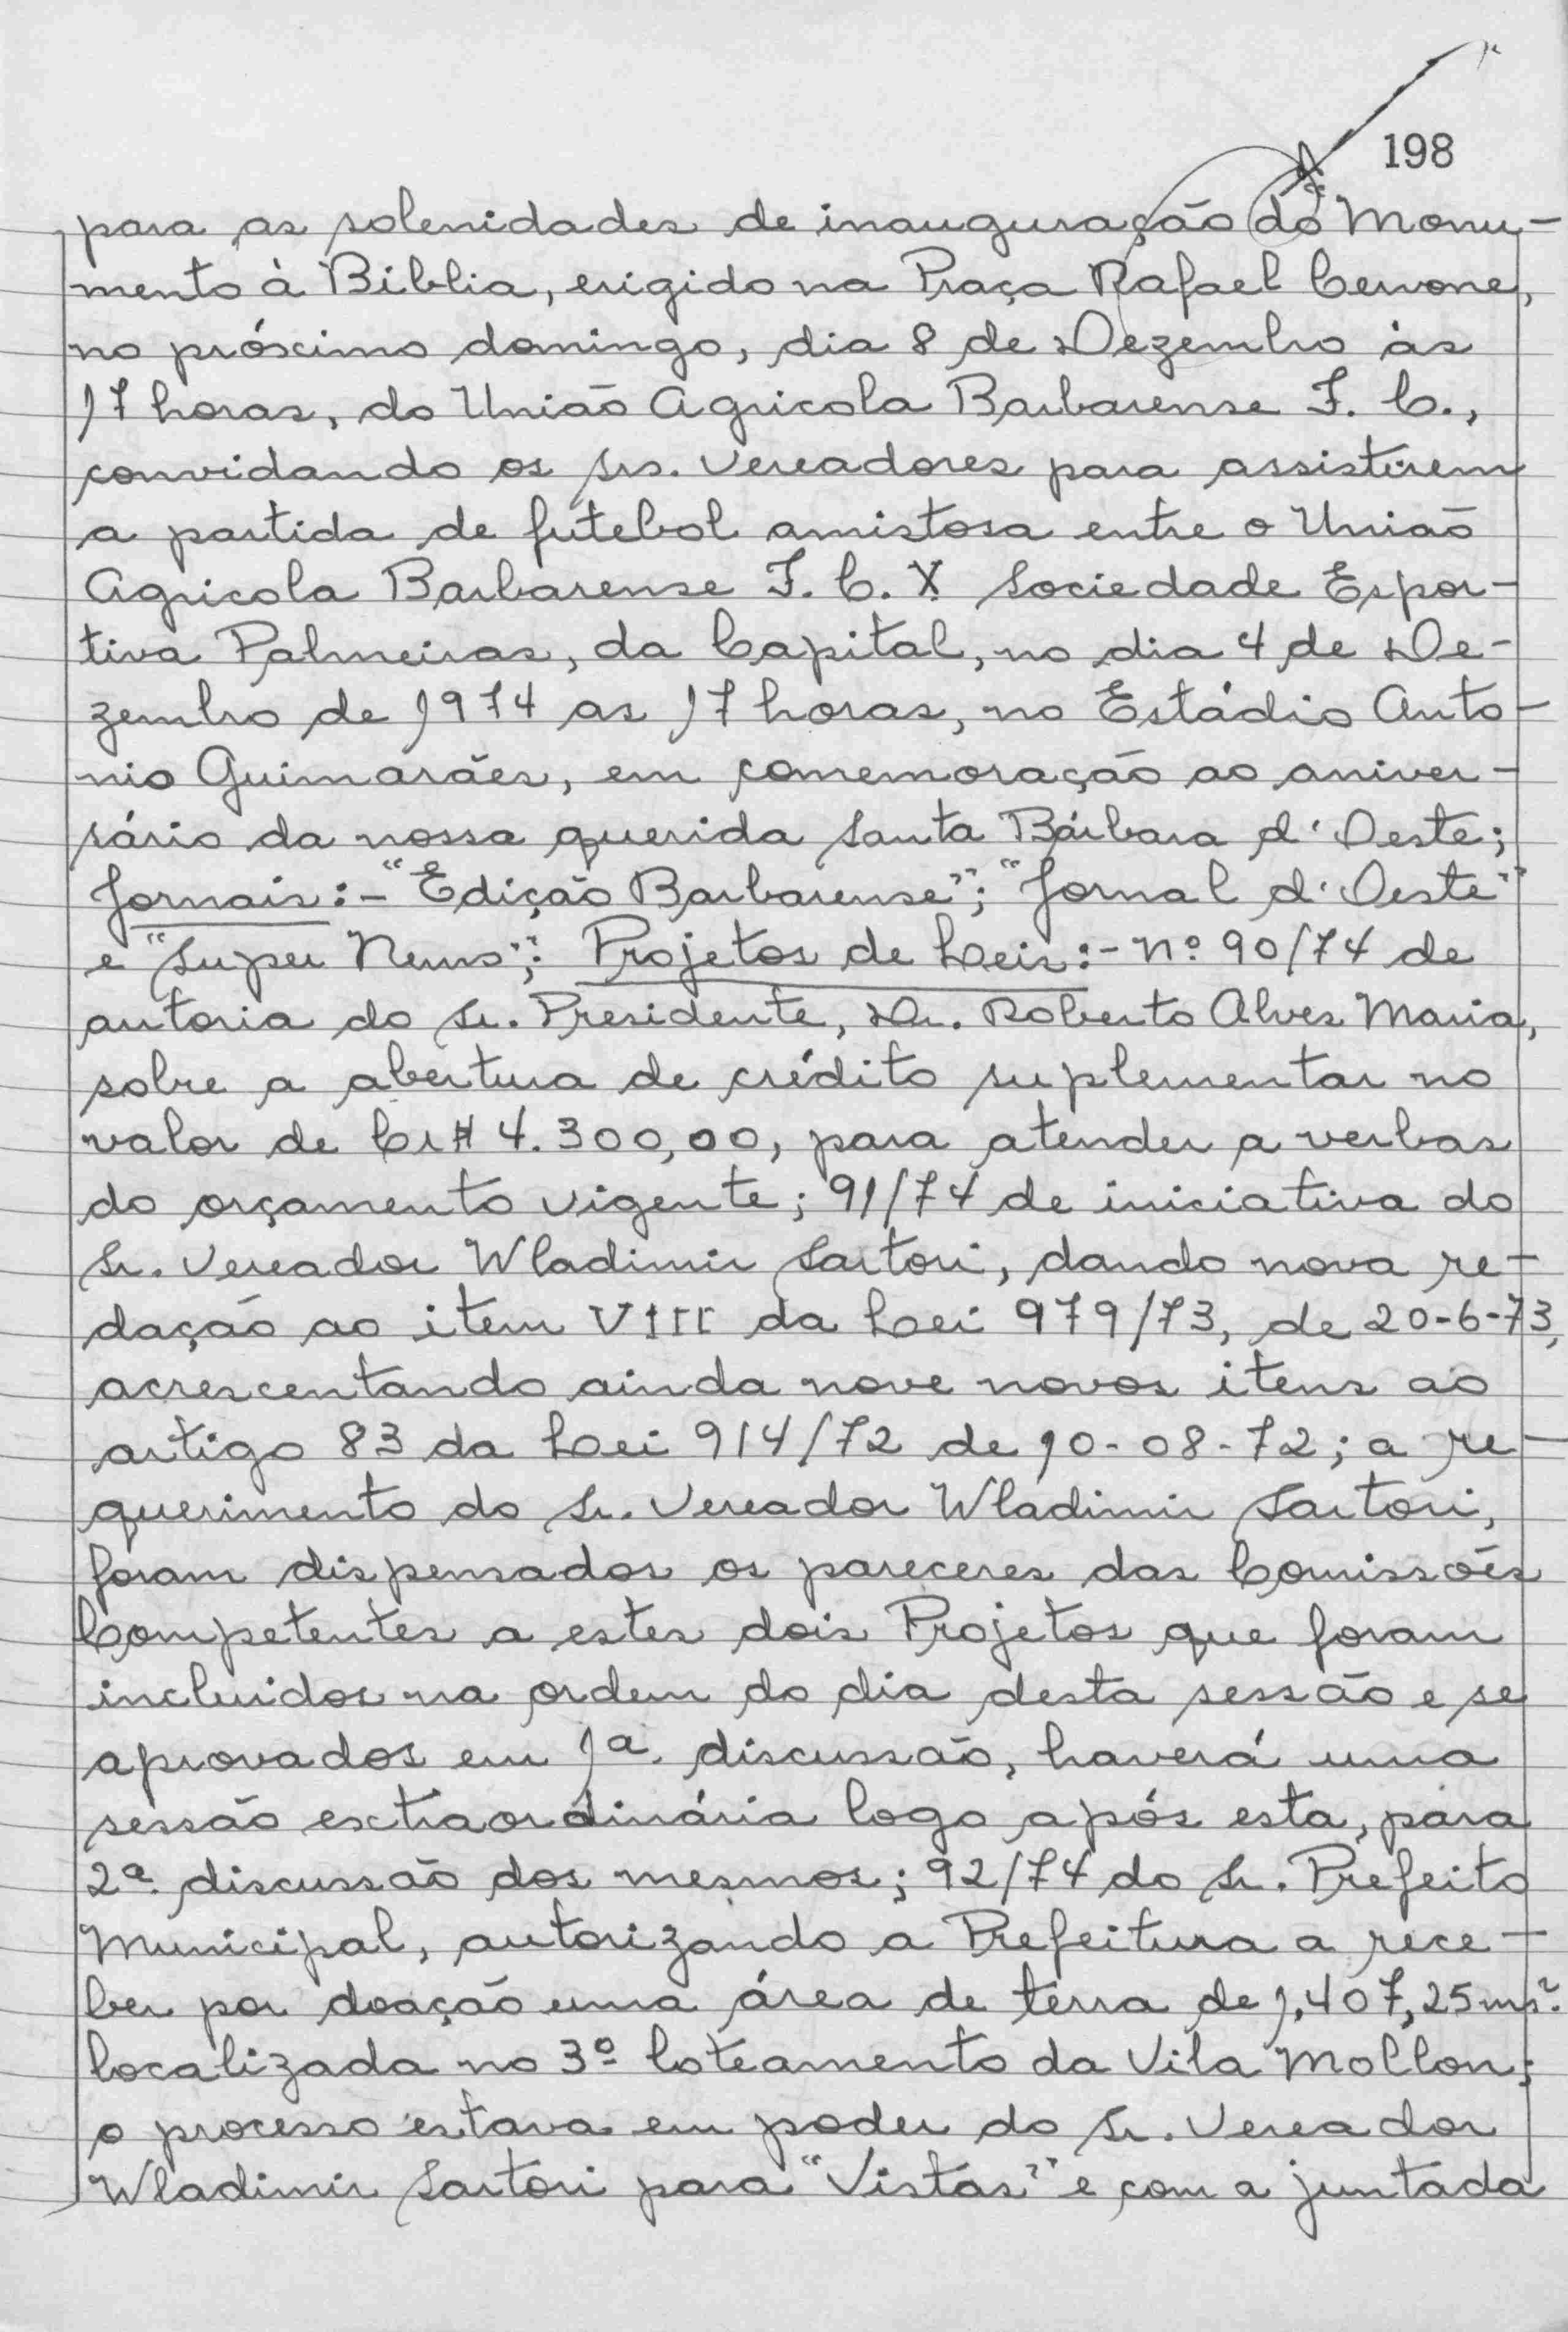 198
para as solenidades de inauguração do Monu-
mento à Bíblia, erigido na Praça Rafael Cervone,
no próximo domingo, dia 8 de Dezembro às
17 horas, do União Agricola Barbarense F. C.,
convidando os srs. Vereadores para assistirem
a partida de futebol amistosa entre o União
Agricola Barbarense F. C. X Sociedade Espor-
tiva Palmeiras, da Capital, no dia 4 de De-
zembro de 1974 as 17 horas, no Estádio Anto-
nio Guimarães, em comemoração ao aniver-
sário da nossa querida Santa Bárbara d'Oeste;
Jornais:- "Edição Barbarense"; "Jornal d'Oeste"
e "Super News"; Projetos de Leis:- nº 90/74 de
autoria do Sr. Presidente, Dr. Roberto Alves Maria,
sobre a abertura de crédito suplementar no
valor de Cr$ 4.300,00, para atender a verbas
do orçamento vigente; 91/74 de iniciativa do
Sr. Vereador Wladimir Sartori, dando nova re-
dação ao item VIII da Lei 979/73, de 20-6-73,
acrescentando ainda nove novos itens ao
artigo 83 da Lei 914/72 de 10-08-72; a re-
querimento do Sr. Vereador Wladimir Sartori,
foram dispensados os pareceres das Comissões
Competentes a estes dois Projetos que foram
incluidos na ordem do dia desta sessão e se
aprovados em 1ª discussão, haverá uma
sessão extraordinária logo após esta, para
2ª discussão dos mesmos; 92/74 do Sr. Prefeito
Municipal, autorizando a Prefeitura a rece-
ber por doação uma área de terra de 1.407,25 ms².
localizada no 3º loteamento da Vila Mollon;
o processo estava em poder do Sr. Vereador
Wladimir Sartori para "Vistas" e com a juntada